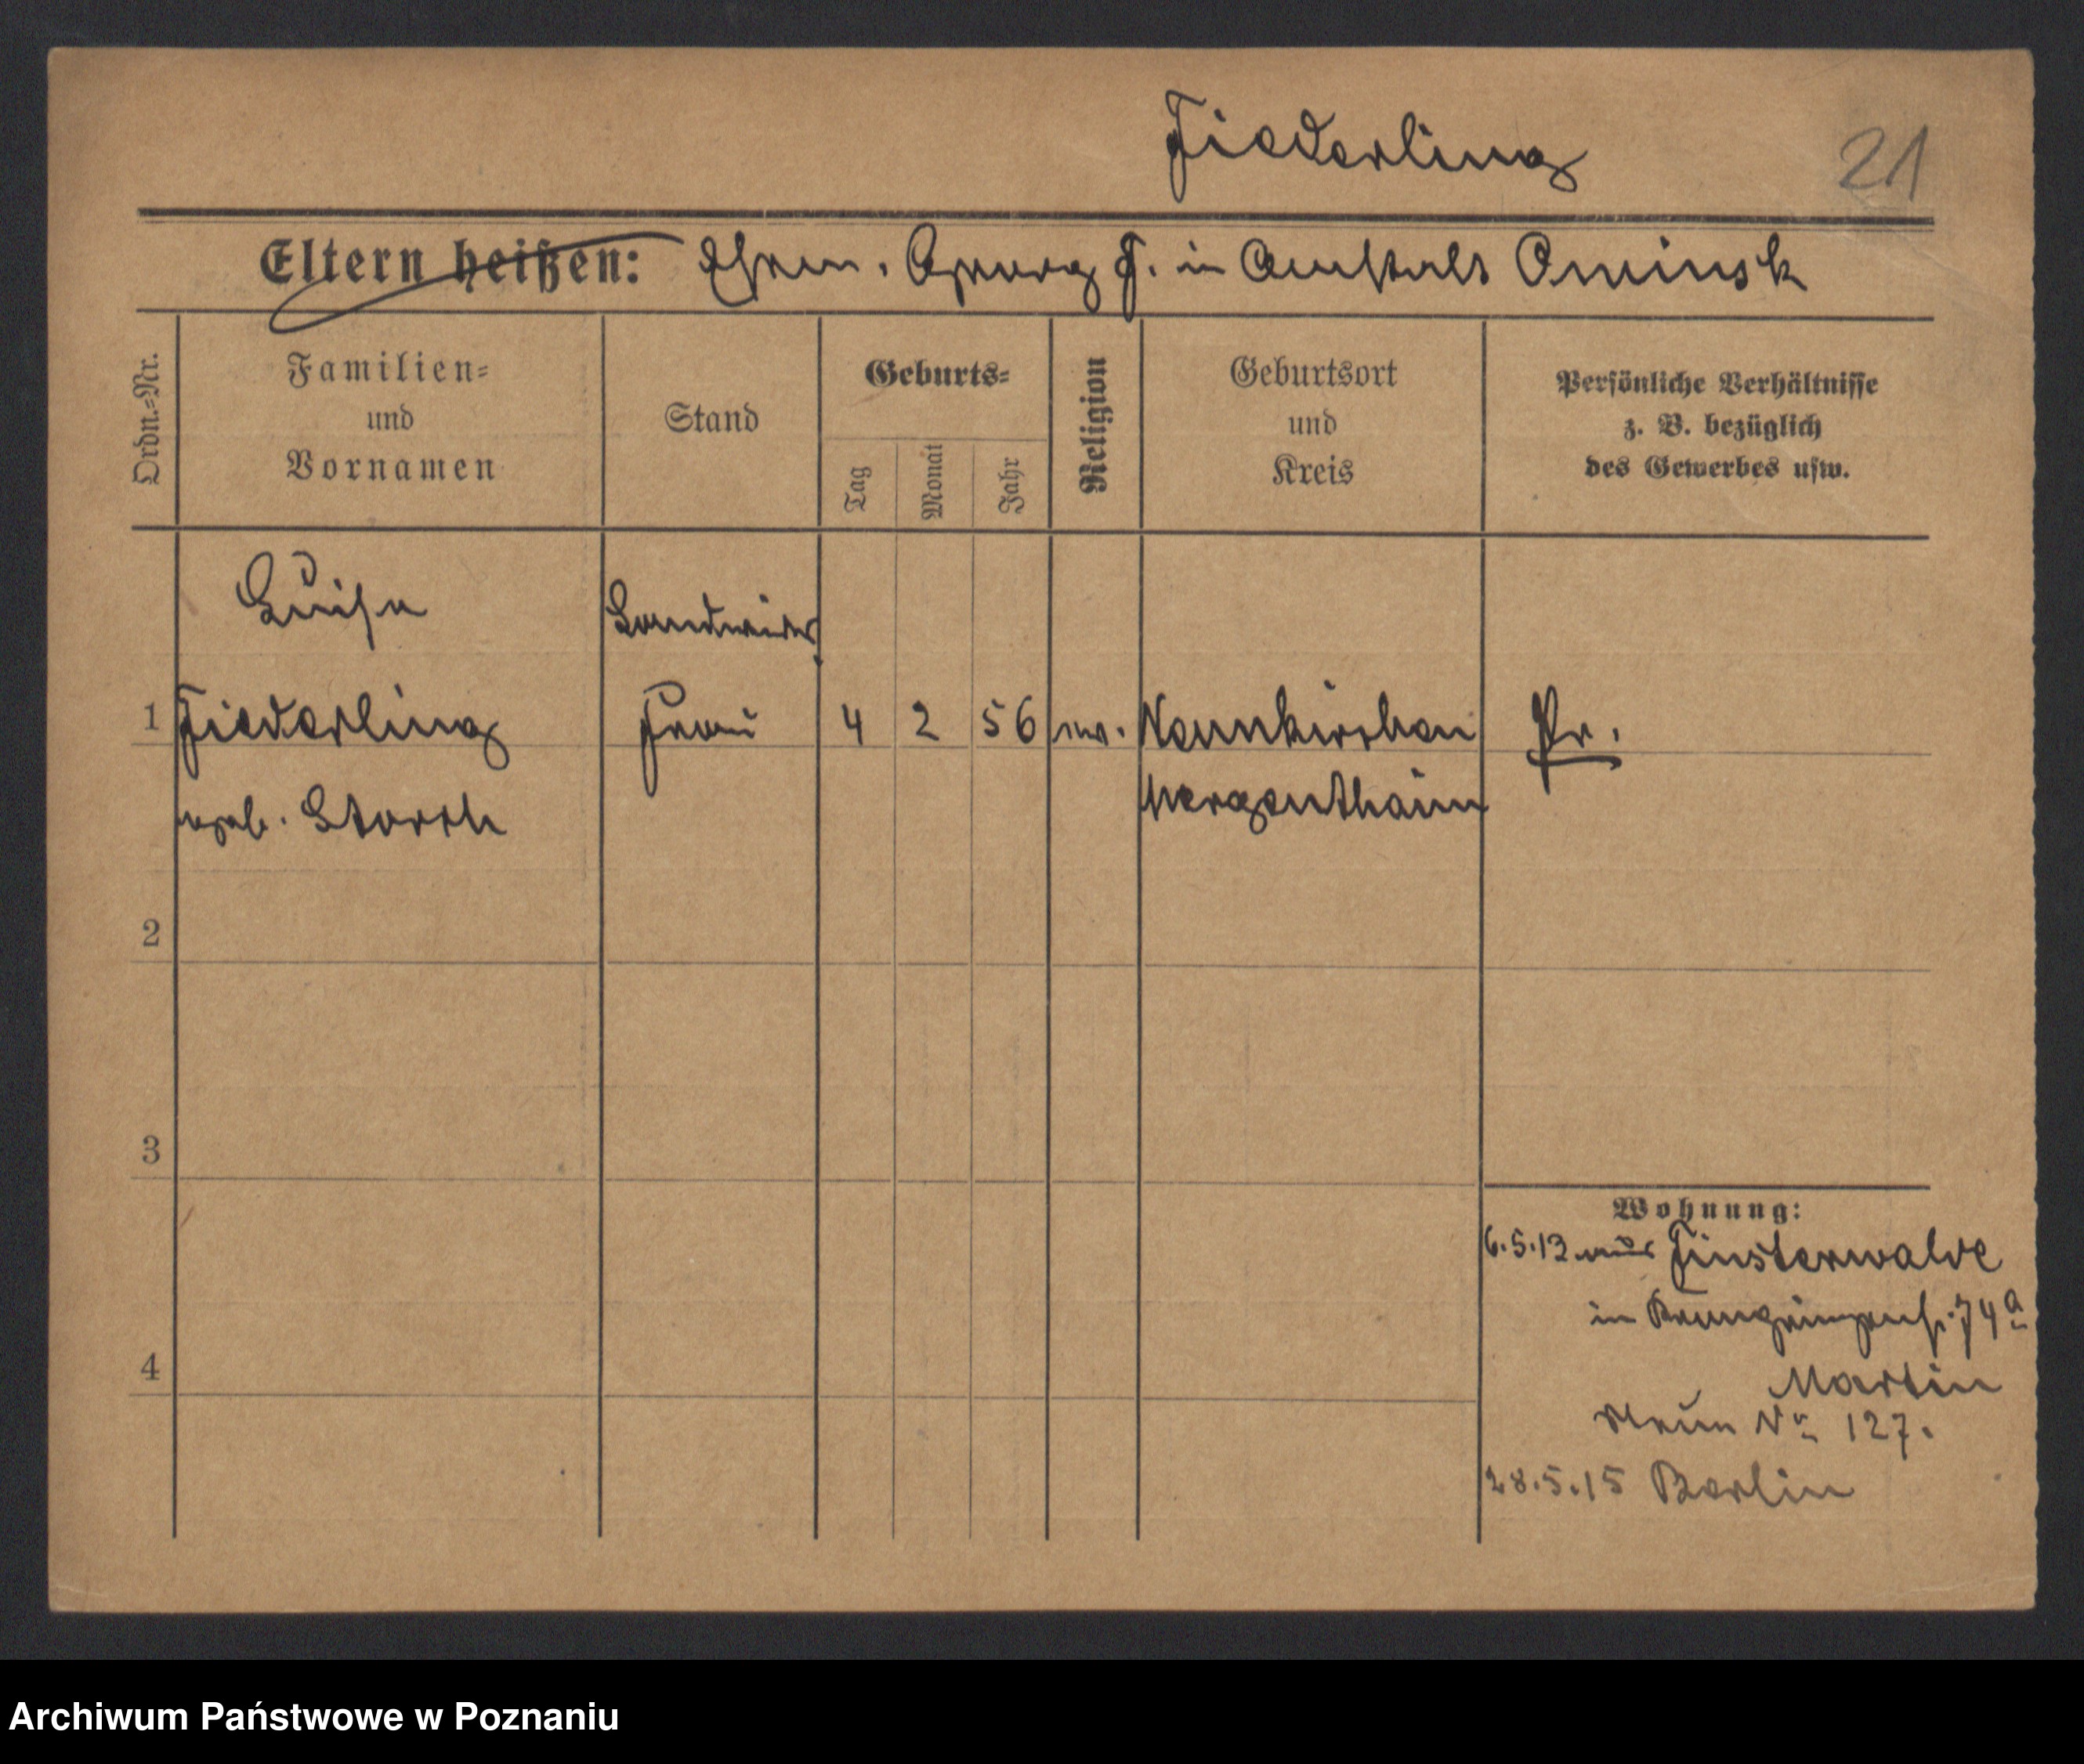 Fiederling
21
Eltern heißen: Ehem. Georg F. in Anstalt Owinsk
Ordn.-Nr.
Familien-
und
Vornamen
Stand
Geburts-
Tag
Monat
Jahr
Religion
Geburtsort
und
Kreis
Persönliche Verhältnisse
z. B. bezüglich
des Gewerbes usw.
Luise Landwirts
1 Fiederling Frau 4 2 56 ev. Neunkirchen Pr.
geb. Storch Mergentheim
2
3
4
Wohnung:
6.5.13 aus Finsterwalde
in 74a
Martin
Nr 127.
28.5.15 Berlin
Archiwum Państwowe w Poznaniu